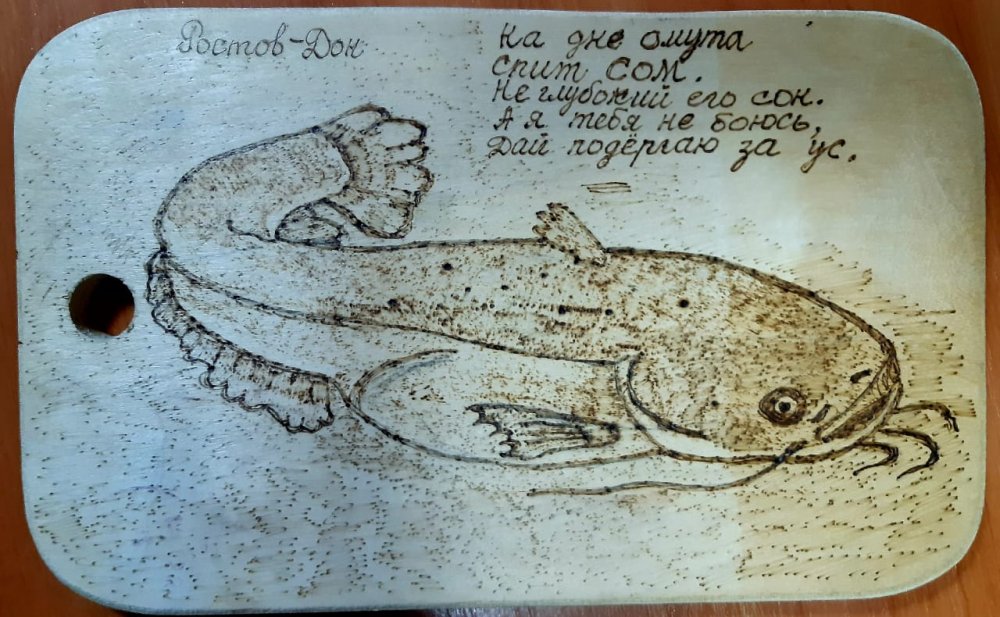 Ростов-Дон
На дне омута
спит СОМ.
Не глубокий его сон.
А я тебя не боюсь,
Дай подёргаю за ус.